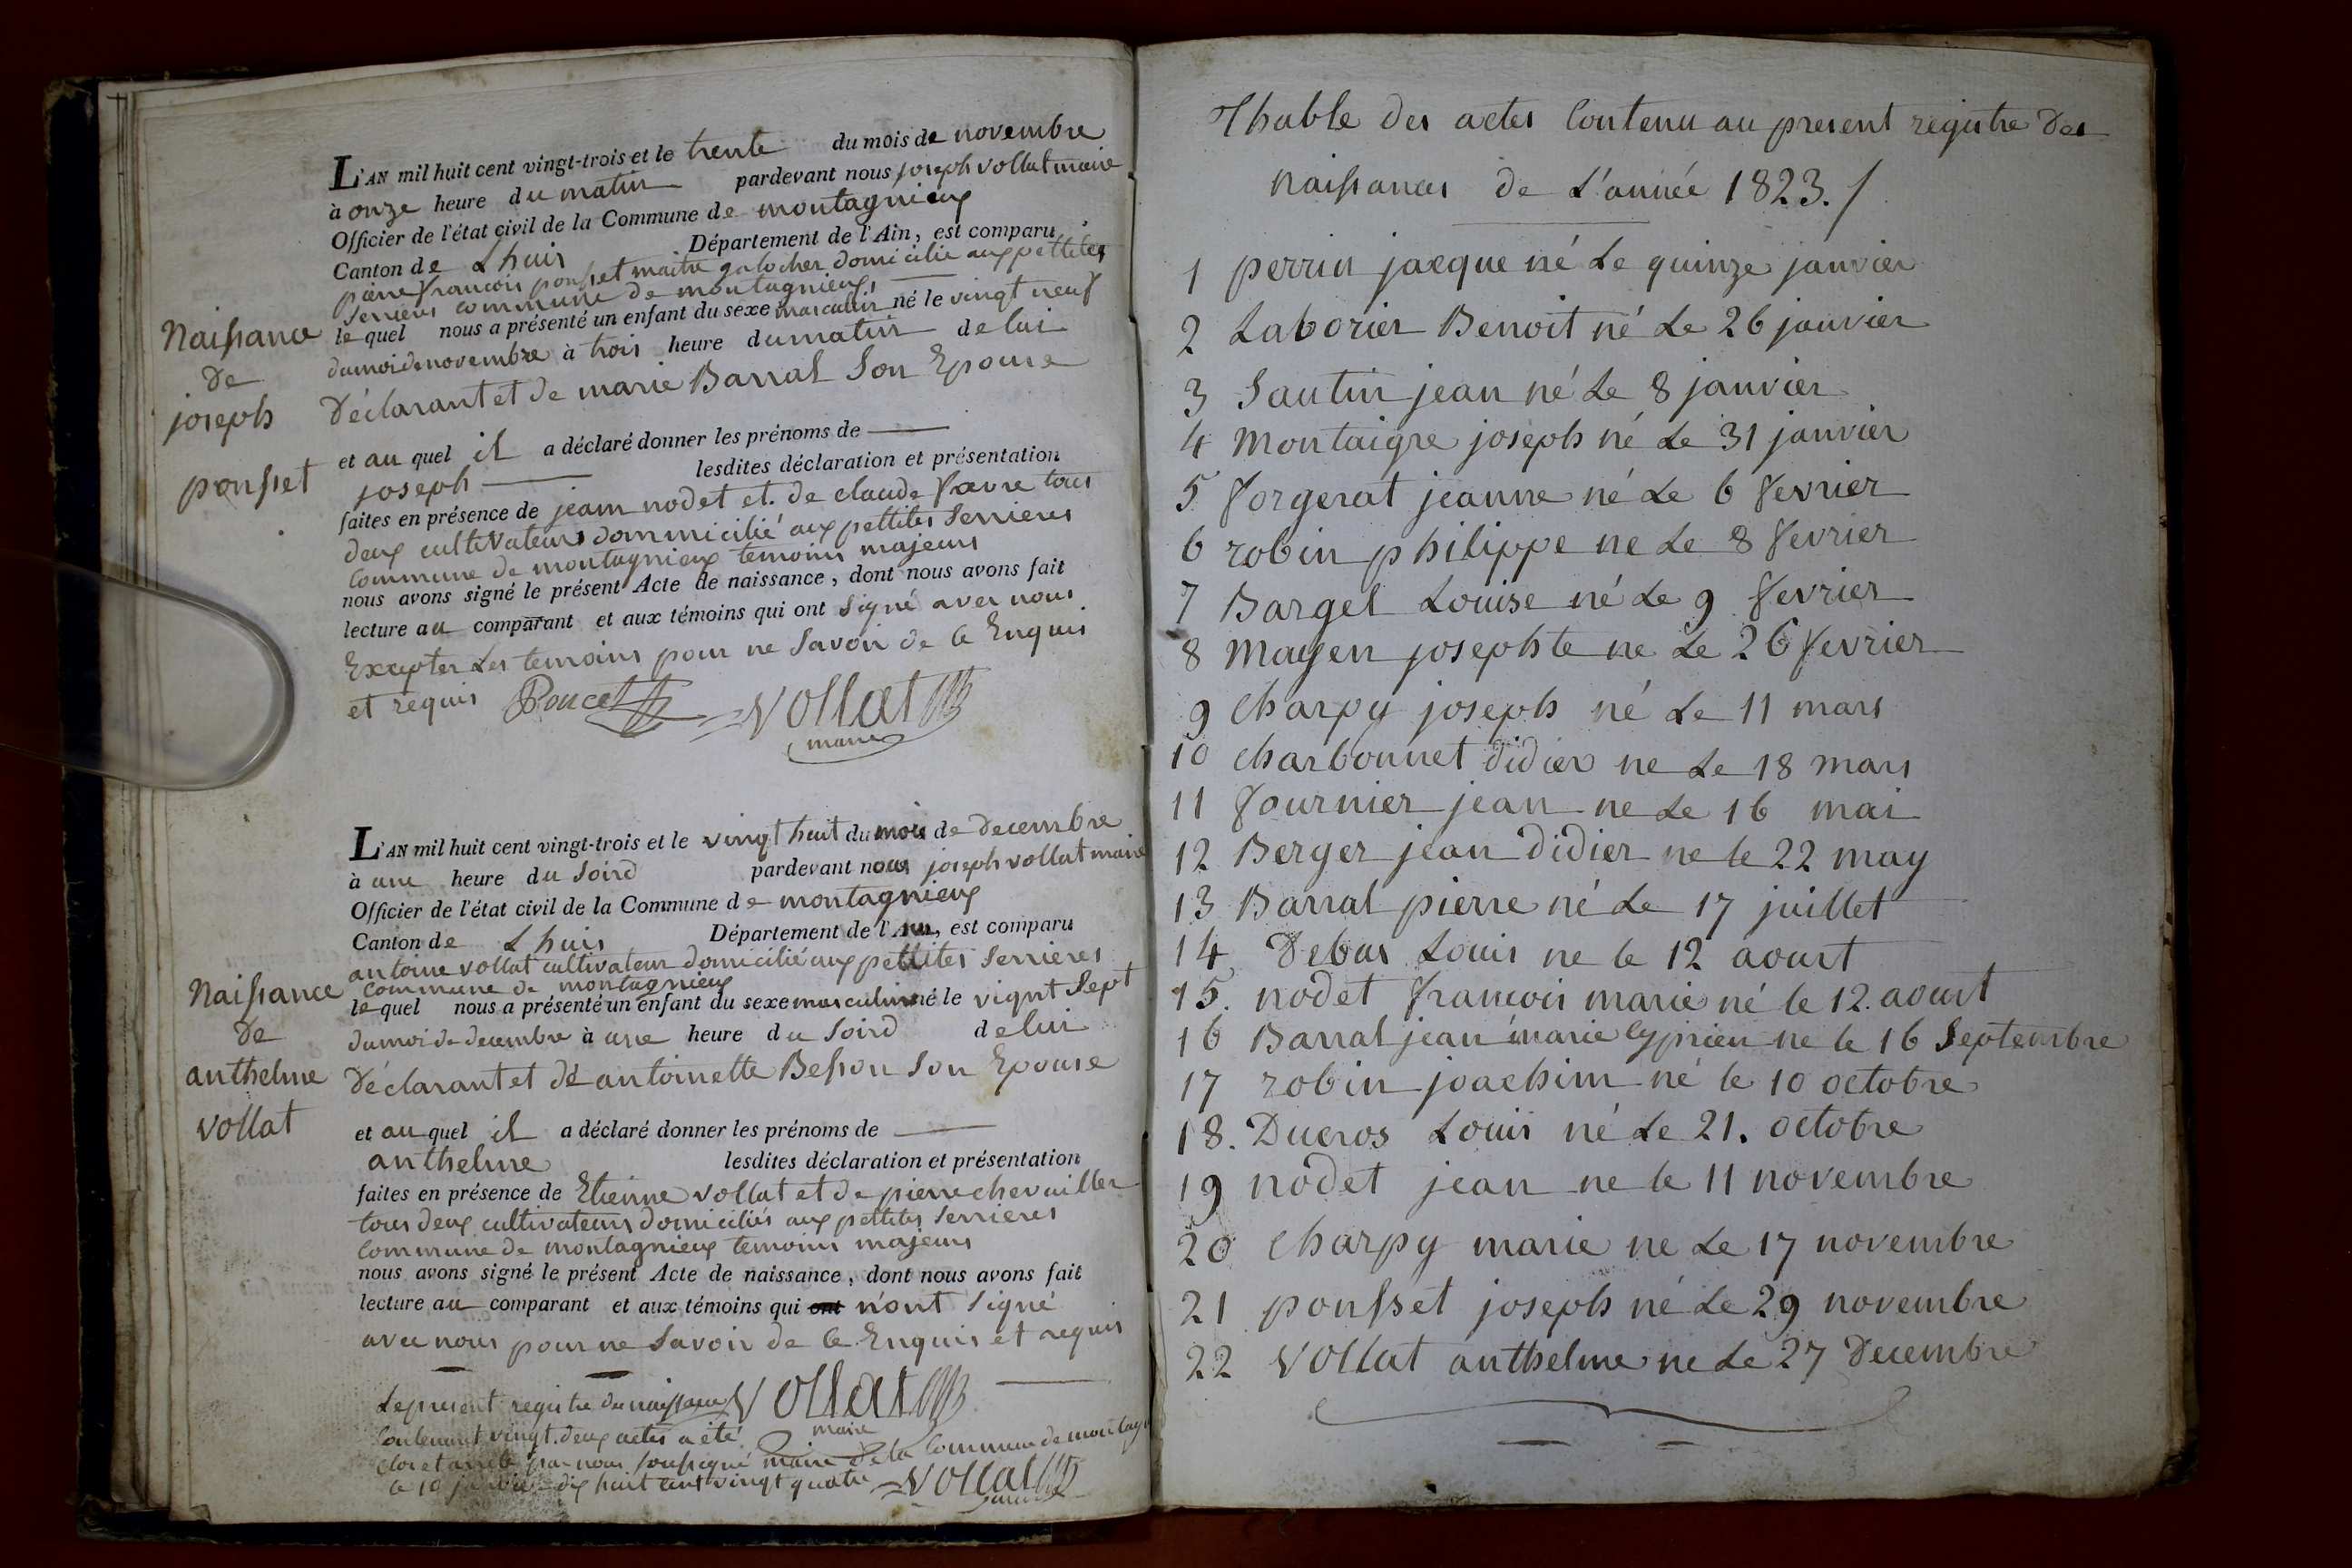 L'AN mil huit cent vingt-trois et le trente du mois de novembre
à onze heure du matin pardevant nous joseph vollat maire
Officier de l'état civil de la Commune de montagnieux
Canton de Lhuis Département de l'Ain, est comparu
pierre francois ponsset maitre galocher domicilié aux pettites
serrieres commune de montagnieux
le quel nous a présenté un enfant du sexe masculin né le vingt neuf
du moi de novembre à trois heure du matin de lui
Déclarant et de marie Barral Son Epouse
et au quel il a déclaré donner les prénoms de
joseph lesdites déclaration et présentation
faites en présence de jeam nodet et de claude favre tous
deux cultivateurs dommicilié aux pettites Serrieres
Commune de montagnieux temoins majeurs
nous avons signé le présent Acte de naissance, dont nous avons fait
lecture au comparant et aux témoins qui ont signé avec nous
Excepter Les temoins pour ne Savoir de ce Enquis
et requis Poncet Vollat
maire
Naissance
De
joseph
ponsset
L'AN mil huit cent vingt-trois et le vingt huit du mois de decembre
à une heure du Soird pardevant nous joseph vollat maire
Officier de l'état civil de la Commune de montagnieux
Canton de Lhuis Département de l'Ain, est comparu
antoine vollat cultivateur domicilié aux pettites Serrieres
Commune de montagnieux
le quel nous a présenté un enfant du sexe masculin né le vignt Sept
du moi de decembre à une heure du Soird de lui
Déclarant et de antoinette Besson Son Epouse
et au quel il a déclaré donner les prénoms de
anthelme lesdites déclaration et présentation
faites en présence de Etienne vollat et de pierre chevailler
tous deux cultivateurs domiciliés aux pettites Serrieres
Commune de montagnieux temoins majeurs
nous avons signé le présent Acte de naissance, dont nous avons fait
lecture au comparant et aux témoins qui ont n'ont signé
avec nous pour ne Savoir de ce Enquis et requis
Vollat
maire
Naissance
De
anthelme
vollat
Le present registre des naissances
Contenant vingt deux actes a été
Clos et arrêté par nous soussigné maire de la Commune de montag
le 10 janvier dix huit cent vingt quatre Vollat
maire
Thable des actes Contenu au present registre des
naissances de L'année 1823. /
1 perrin jacque né Le quinze janvier
2 Laborier Benoit né Le 26 janvier
3 Sautin jean né Le 8 janvier
4 Montaigre joseph né Le 31 janvier
5 forgerat jeanne né Le 6 fevrier
6 robin philippe ne Le 8 fevrier
7 Bargel Louise né Le 9 fevrier
8 Mayen josephte ne Le 26 fevrier
9 Charpy joseph né Le 11 mars
10 Charbonnet didier ne Le 18 mars
11 fournier jean ne Le 16 mai
12 Berger jean Didier ne le 22 may
13 Barral pierre né Le 17 juillet
14 Debas Louis ne le 12 aoust
15. nodet francois marie né le 12. aoust
16 Barral jean marie Cyprien ne le 16 Septembre
17 robin joachim né le 10 octobre
18. Ducros Louis né Le 21. octobre
19 nodet jean ne le 11 novembre
20 Charpy marie ne Le 17 novembre
21 ponsset joseph né Le 29 novembre
22 Vollat anthelme ne Le 27 Decembre